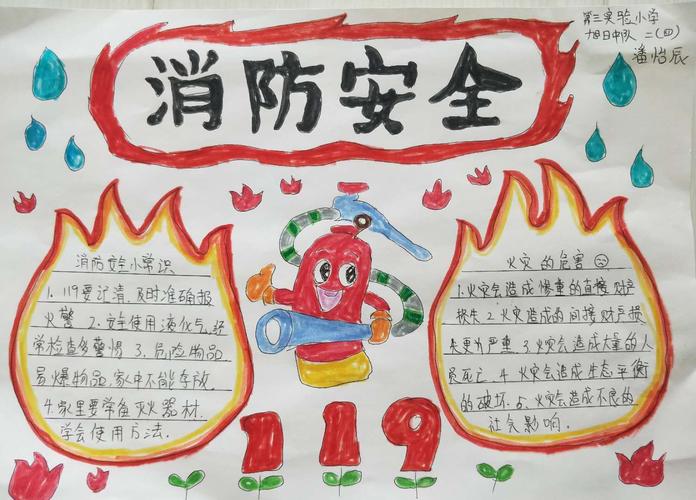 消防安全
第三实验小学
旭日中队 二(四)
潘怡辰
消防安全小常识
1. 119要记清,及时准确报
火警 2. 安全使用液化气,经
常检查多警惕 3. 危险物品
易爆物品,家中不能存放
4. 家里要常备灭火器材.
学会使用方法.
火灾的危害
1. 火灾会造成惨重的直接财产
损失 2. 火灾造成的间接财产损
失更为严重 3. 火灾会造成大量的人
员死亡. 4. 火灾会造成生态平衡
的破坏. 5. 火灾会造成不良的
社会影响.
119